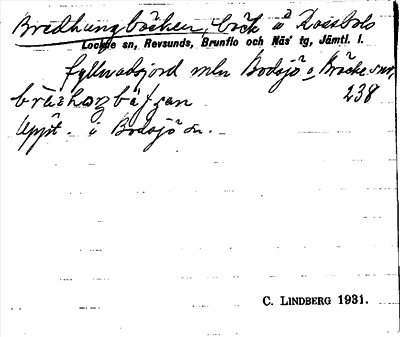 Bredhungbäcken, bäck å Rossbols
Lockne sn, Revsunds, Brunflo och Näs tg, Jämtl. l.
fyllnadsjord mln Bodsjö o. Bräcke snr,
238
Uppt. i Bodsjö sn.
C. LINDBERG 1931.